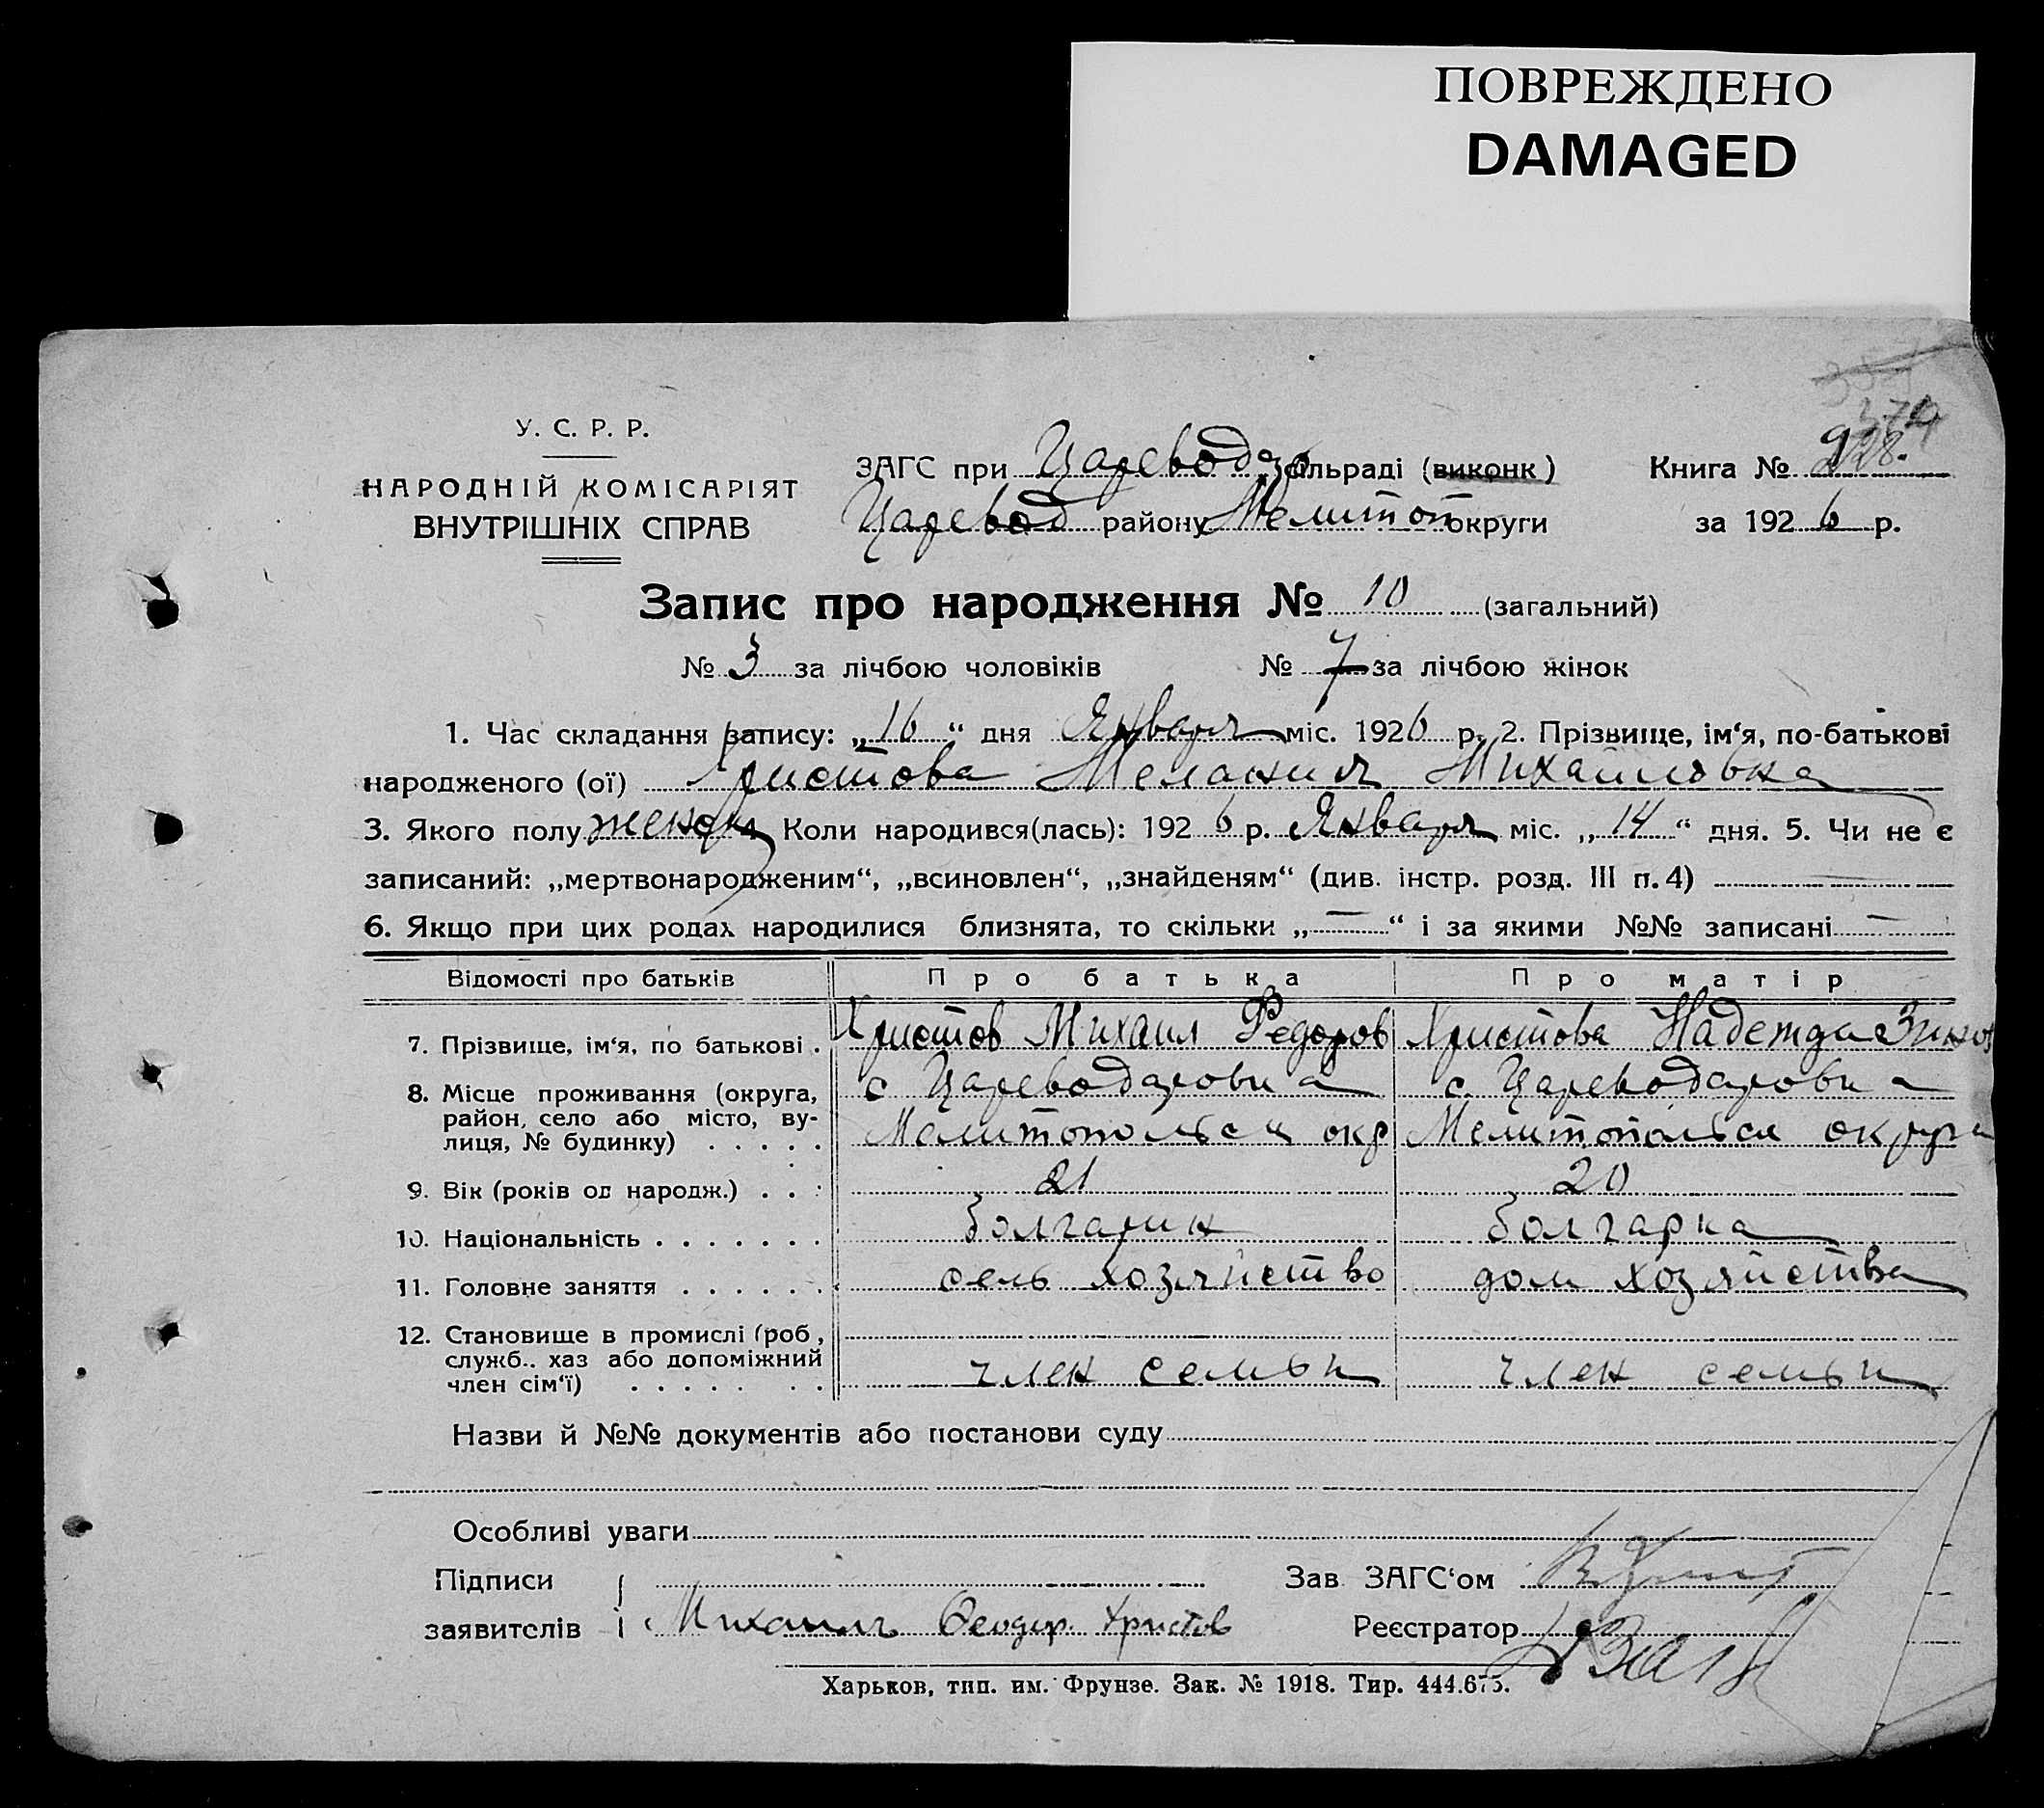 ПОВРЕЖДЕНО
DAMAGED
У. С. Р. Р.
НАРОДНІЙ КОМІСАРІЯТ
ВНУТРІШНІХ СПРАВ
ЗАГС при Цареводар сільраді (виконк)
Царевод району Мелитоп округи
Книга № 228.
за 1926 р.
Запис про народження № 10 (загальний)
№ 3 за лічбою чоловіків № 7 за лічбою жінок
1. Час складання запису: „16“ дня Января міс. 1926 р. 2. Прізвище, ім‘я, по-батькові
народженого (ої) Христова Мелания Михайловна
3. Якого полу женск 4. Коли народився(лась): 1926 р. Января міс. „14“ дня. 5. Чи не є
записаний: „мертвонародженим“, „всиновлен“, „знайденям“ (див. інстр. розд. III п. 4)
6. Якщо при цих родах народилися близнята, то скільки „—“ і за якими №№ записані —
Відомості про батьків Про батька Про матір
7. Прізвище, ім‘я, по батькові . Христов Михаил Федоров Христова Надежда Зинов
8. Місце проживання (округа, с Цареводаровка с. Цареводаровка
район, село або місто, ву-
лиця, № будинку) . . . . . Мелитопольск окр Мелитопольск округа
9. Вік (років од народж.) . . . 21 20
10. Національність . . . . . . . болгарин болгарка
11. Головне заняття . . . . . . . сель хозяйство дом хозяйства
12. Становище в промислі (роб,
служб.. хаз або допоміжний
член сім‘ї) . . . . . . . член семьи член семьи
Назви й №№ документів або постанови суду
Особливі уваги
Підписи
заявителів Михаилъ Феодор. Христов
Зав ЗАГС‘ом
Реєстратор
Харьков, тип. им. Фрунзе. Зак. № 1918. Тир. 444.675.